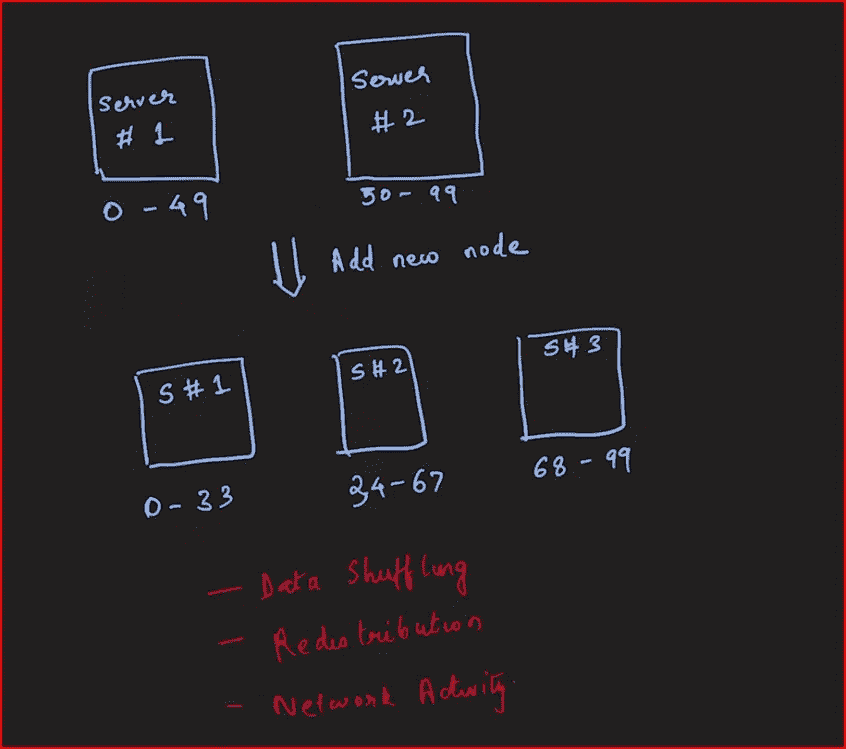 Server
# 1
Server
# 2
0 - 49
50 - 99
Add new node
S # 1
S # 2
S # 3
0 - 33
34 - 67
68 - 99
- Data Shuffling
- Redistribution
- Network Activity